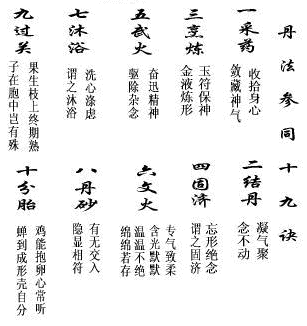 丹法参同十九诀
一采药
收拾身心
敛藏神气
二结丹
凝气聚
念不动
三烹炼
玉符保神
金液炼形
四固济
忘形绝念
谓之固济
五武火
奋迅精神
驱除杂念
六文火
专气致柔
含光默默
温温不绝
绵绵若存
七沐浴
洗心涤虑
谓之沐浴
八丹砂
有无交入
隐显相符
九过关
果生枝上终期熟
子在胞中岂有殊
十分胎
鸡能抱卵心常听
蝉到成形壳自分